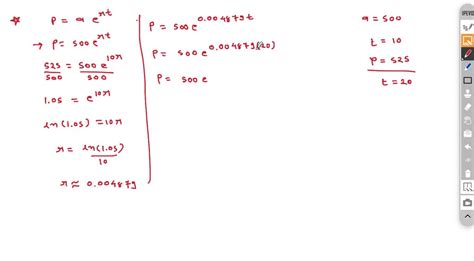 * P = a e^{rt}
→ P = 500 e^{rt}
525/500 = 500 e^{10r}/500
1.05 = e^{10r}
ln(1.05) = 10r
r = ln(1.05)/10
r ≈ 0.004879
P = 500 e^{0.004879 t}
P = 500 e^{0.004879(20)}
P = 500 e
a = 500
t = 10
P = 525
t = 20